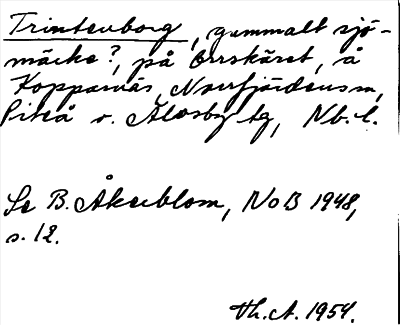 Trintenborg, gammalt sjö-
märke?, på Orrskäret, å
Kopparnäs, Norrfjärdens sn,
Piteå o. Älvsby tg, Nb. l.
Se B. Åkerblom, NoB 1948,
s. 12.
Th. A. 1954.